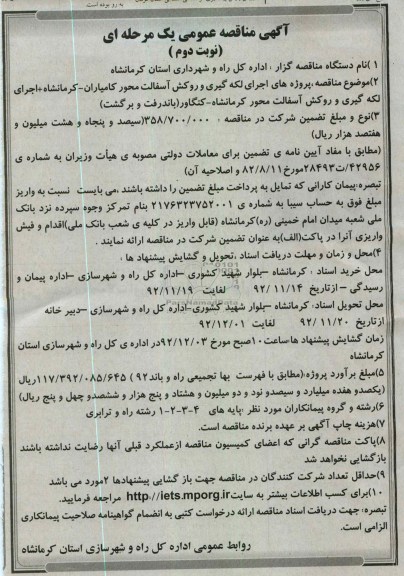 آگهی مناقصه عمومی یک مرحله ای
(نوبت دوم )
۱ )نام دستگاه مناقصه گزار : اداره کل راه و شهرداری استان کرمانشاه
۲)موضوع مناقصه:پروژه های اجرای لکه گیری و روکش آسفالت محور کامیاران-کرمانشاه+اجرای
لکه گیری و روکش آسفالت محور کرمانشاه-کنگاور(باندرفت و برگشت)
۳)نوع و مبلغ تضمین شرکت در مناقصه : ۳۵۸/۷۰۰/۰۰۰(سیصد و پنجاه و هشت میلیون و
هفتصد هزار ریال)
(مطابق با مفاد آیین نامه ی تضمین برای معاملات دولتی مصوبه ی هیأت وزیران به شماره ی
۴۲۹۵۶/ت۲۸۴۹۳مورخ۸۲/۸/۱۱ و اصلاحیه آن)
تبصره:پیمان کارانی که تمایل به پرداخت مبلغ تضمین را داشته باشند ،می بایست نسبت به واریز
مبلغ فوق به حساب سیبا به شماره ی ۲۱۷۶۳۲۳۷۵۲۰۰۱ بنام تمرکز وجوه سپرده نزد بانک
ملی شعبه میدان امام خمینی (ره)کرمانشاه (قابل واریز در کلیه ی شعب بانک ملی)اقدام و فیش
واریزی آنرا در پاکت(الف)به عنوان تضمین شرکت در مناقصه ارائه نمایند .
۴)محل و زمان و مهلت دریافت اسناد ،تحویل و گشایش پیشنهاد ها :
محل خرید اسناد : کرمانشاه –بلوار شهید کشوری –اداره کل راه و شهرسازی –اداره پیمان و
رسیدگی – ازتاریخ ۹۲/۱۱/۱۴ لغایت ۹۲/۱۱/۱۹
محل تحویل اسناد: کرمانشاه –بلوار شهید کشوری–اداره کل راه و شهرسازی –دبیر خانه
ازتاریخ ۹۲/۱۱/۲۰ لغایت ۹۲/۱۲/۰۱
زمان گشایش پیشنهاد ها:ساعت۱۰صبح مورخ ۹۲/۱۲/۰۳در اداره ی کل راه و شهرسازی استان
کرمانشاه
۵)مبلغ برآورد پروژه:(مطابق با فهرست بها تجمیعی راه و باند۹۲ ) ۱۱۷/۳۹۲/۰۸۵/۶۴۵ریال
(یکصدو هفده میلیارد و سیصدو نود و دو میلیون و هشتاد و پنج هزار و ششصدو چهل و پنج ریال)
۶)رشته و گروه پیمانکاران مورد نظر :پایه های ۴-۳-۲-۱ رشته راه و ترابری
۷)هزینه چاپ آگهی بر عهده برنده مناقصه است.
۸)پاکت مناقصه گرانی که اعضای کمیسیون مناقصه ازعملکرد قبلی آنها رضایت نداشته باشند
بازگشایی نخواهد شد
۹)حداقل تعداد شرکت کنندگان در مناقصه جهت باز گشایی پیشنهادها ۲مورد می باشد
۱۰)برای کسب اطلاعات بیشتر به سایتhttp://iets.mporg.ir مراجعه فرمایید.
تبصره: جهت دریافت اسناد مناقصه ارائه درخواست کتبی به انضمام گواهینامه صلاحیت پیمانکاری
الزامی است.
روابط عمومی اداره کل راه و شهرسازی استان کرمانشاه